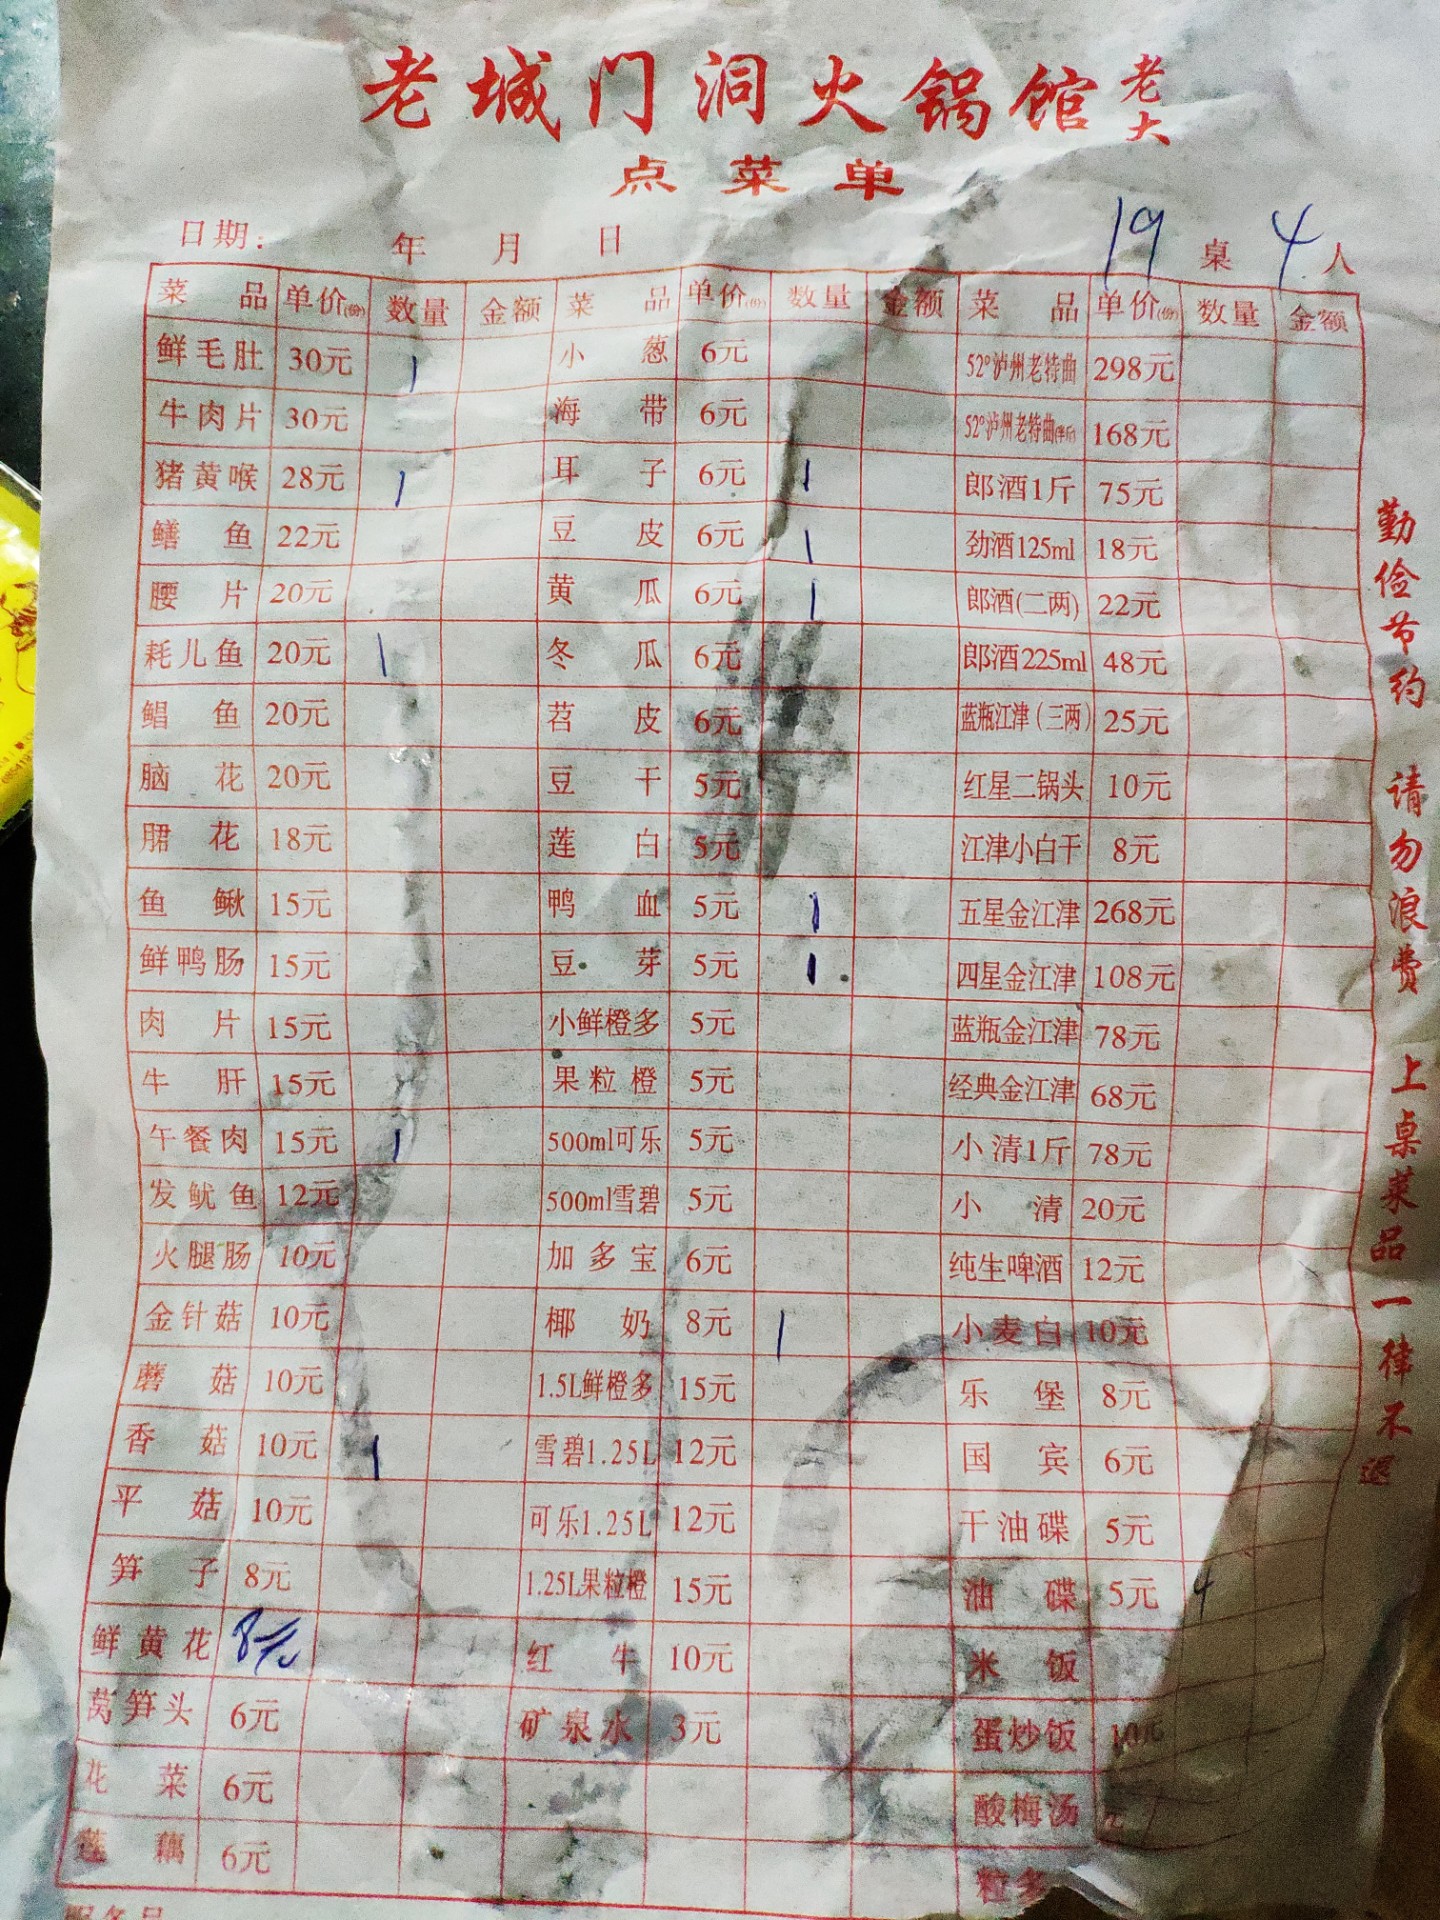 老城门洞火锅馆 老大
点菜单
日期： 年 月 日 19 桌 4 人
菜品 单价(份) 数量 金额 菜品 单价(份) 数量 金额 菜品 单价(份) 数量 金额
鲜毛肚 30元 1 小葱 6元 52°泸州老特曲 298元
牛肉片 30元 海带 6元 52°泸州老特曲(半斤) 168元
猪黄喉 28元 1 耳子 6元 1 郎酒1斤 75元
鳝鱼 22元 豆皮 6元 1 劲酒125ml 18元
腰片 20元 黄瓜 6元 1 郎酒(二两) 22元
耗儿鱼 20元 1 冬瓜 6元 郎酒225ml 48元
鲳鱼 20元 苕皮 6元 蓝瓶江津（三两） 25元
脑花 20元 豆干 5元 红星二锅头 10元
腘花 18元 莲白 5元 江津小白干 8元
鱼鳅 15元 鸭血 5元 1 五星金江津 268元
鲜鸭肠 15元 豆芽 5元 1 四星金江津 108元
肉片 15元 小鲜橙多 5元 蓝瓶金江津 78元
牛肝 15元 果粒橙 5元 经典金江津 68元
午餐肉 15元 1 500ml可乐 5元 小清1斤 78元
发鱿鱼 12元 500ml雪碧 5元 小清 20元
火腿肠 10元 加多宝 6元 纯生啤酒 12元
金针菇 10元 椰奶 8元 1 小麦白 10元
蘑菇 10元 1.5L鲜橙多 15元 乐堡 8元
香菇 10元 1 雪碧1.25L 12元 国宾 6元
平菇 10元 可乐1.25L 12元 干油碟 5元
笋子 8元 1.25L果粒橙 15元 油碟 5元 4
鲜黄花 8元 红牛 10元 米饭
莴笋头 6元 矿泉水 3元 蛋炒饭 10元
花菜 6元 酸梅汤
莲藕 6元 粒多
服务员
勤俭节约 请勿浪费 上桌菜品一律不退